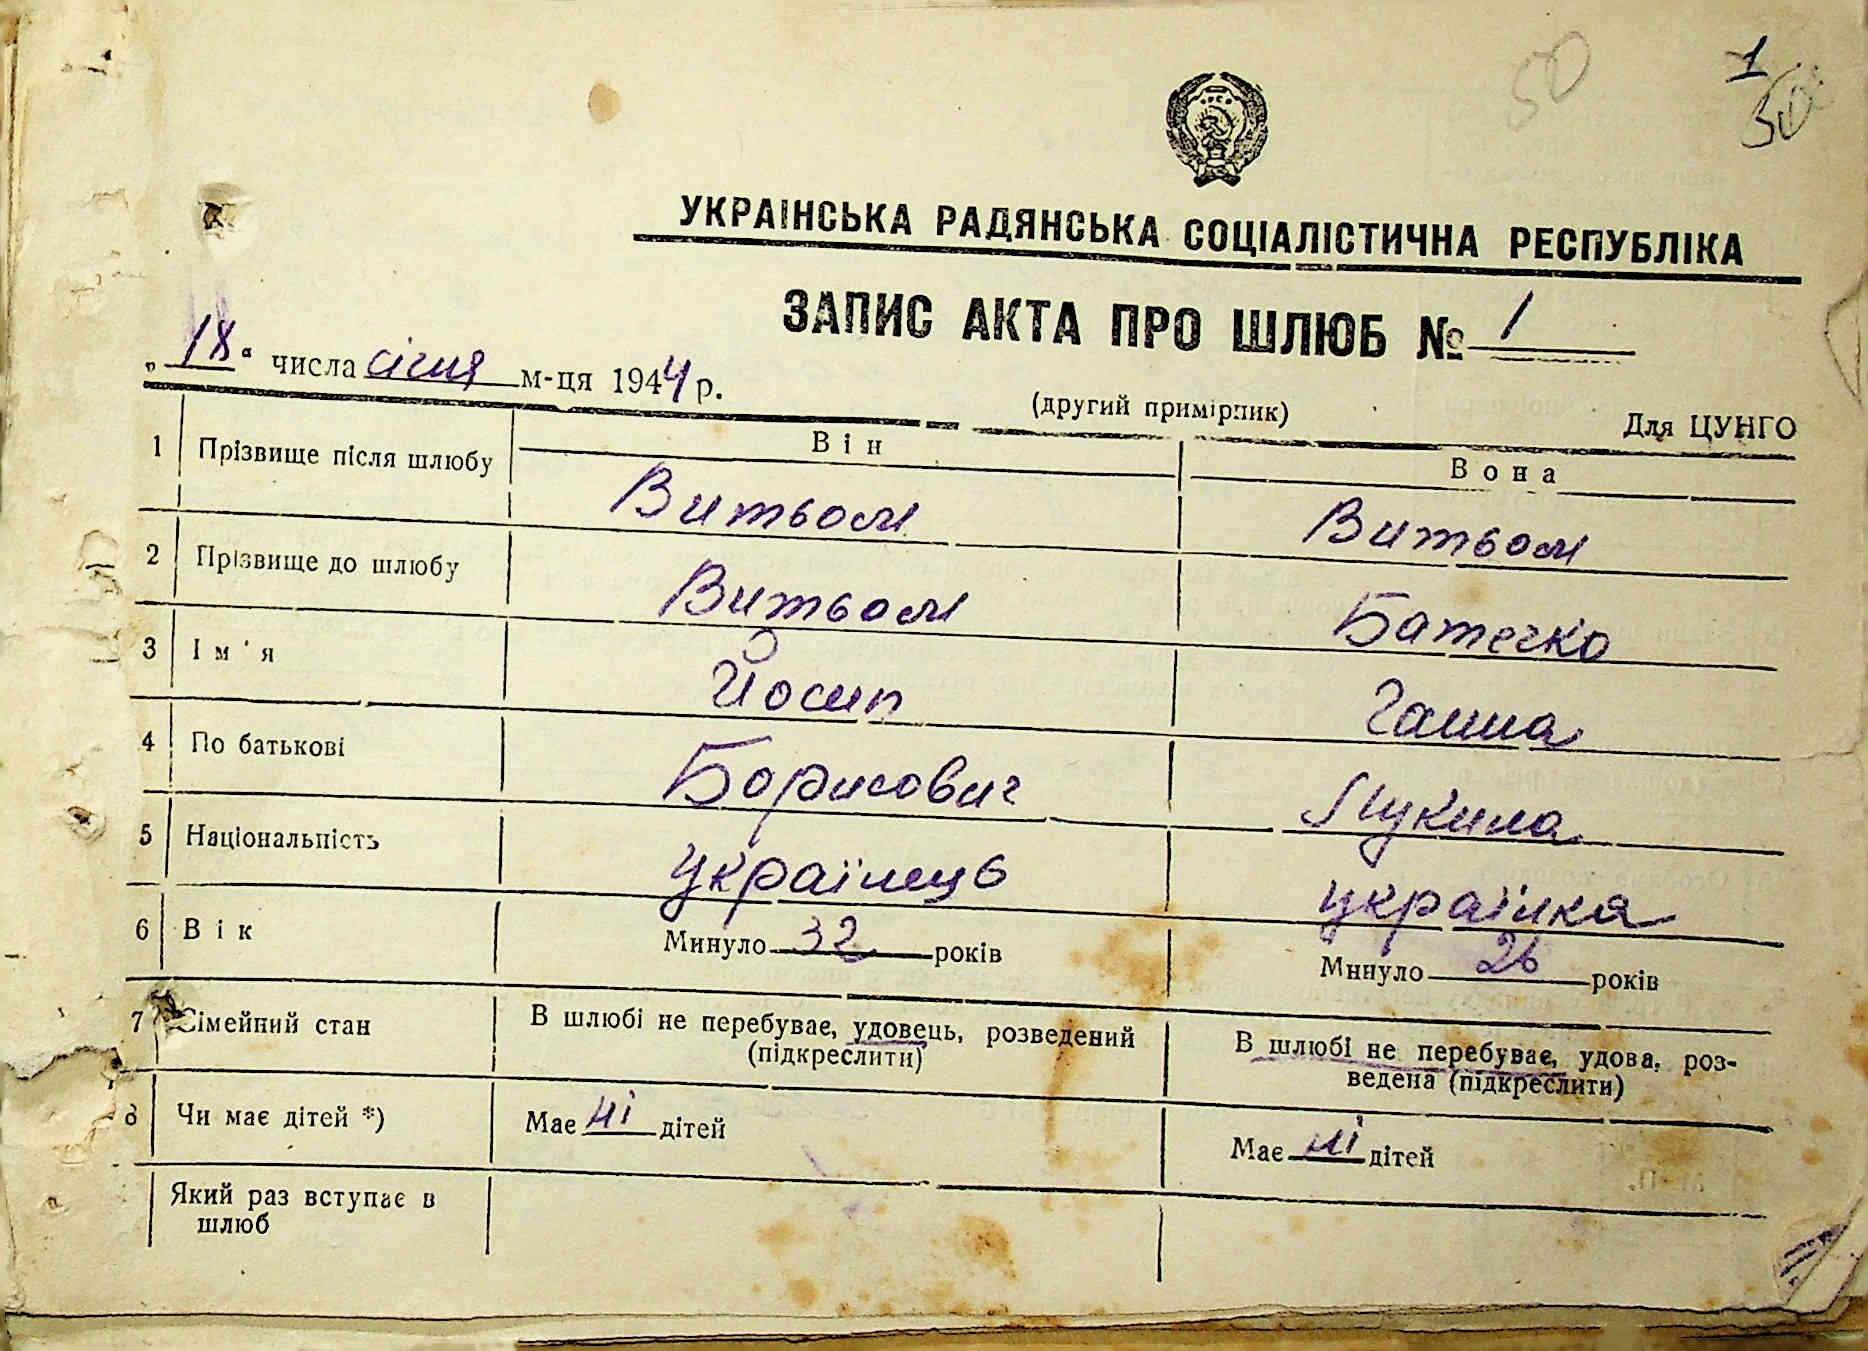 50
1
50
УКРАІНСЬКА РАДЯНСЬКА СОЦІАЛІСТИЧНА РЕСПУБЛІКА
ЗАПИС АКТА ПРО ШЛЮБ № 1
„18“ числа січня м-ця 1944 р.
(другий примірник)
Для ЦУНГО
Він
Вона
1 Прізвище після шлюбу Витвом Витвом
2 Прізвище до шлюбу Витвом Батечко
3 Ім'я Йосип Ганна
4 По батькові Борисович Лукина
5 Національність українець українка
6 Вік Минуло 32 років Минуло 26 років
7 Сімейний стан В шлюбі не перебуває, удовець, розведений (підкреслити) В шлюбі не перебуває, удова, роз-
ведена (підкреслити)
8 Чи має дітей *) Має ні дітей Має ні дітей
Який раз вступає в
шлюб